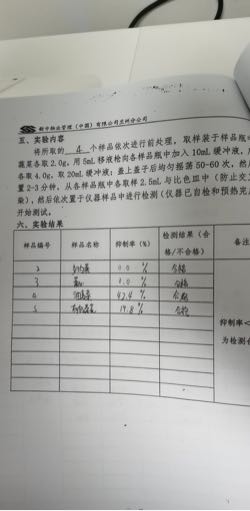 新中物业管理（中国）有限公司兰州分公司
五、实验内容
将所取的 4 个样品依次进行前处理，取样装于样品瓶中
蔬菜各取2.0g，用5mL移液枪向各样品瓶中加入10mL缓冲液，
各取4.0g，取20mL缓冲液；盖上盖子后均匀摇荡50-60次，然
置2-3分钟，从各样品瓶中各取样2.5mL与比色皿中（防止交
染），然后依次置于仪器样品中进行检测（仪器已自检和预热完
开始测试。
六、实验结果
样品编号 样品名称 抑制率（%） 检测结果（合格/不合格） 备注
2 0.0 % 合格
3 0.0 % 合格
4 42.4 % 合格
5 19.8 % 合格
抑制率<
为检测合